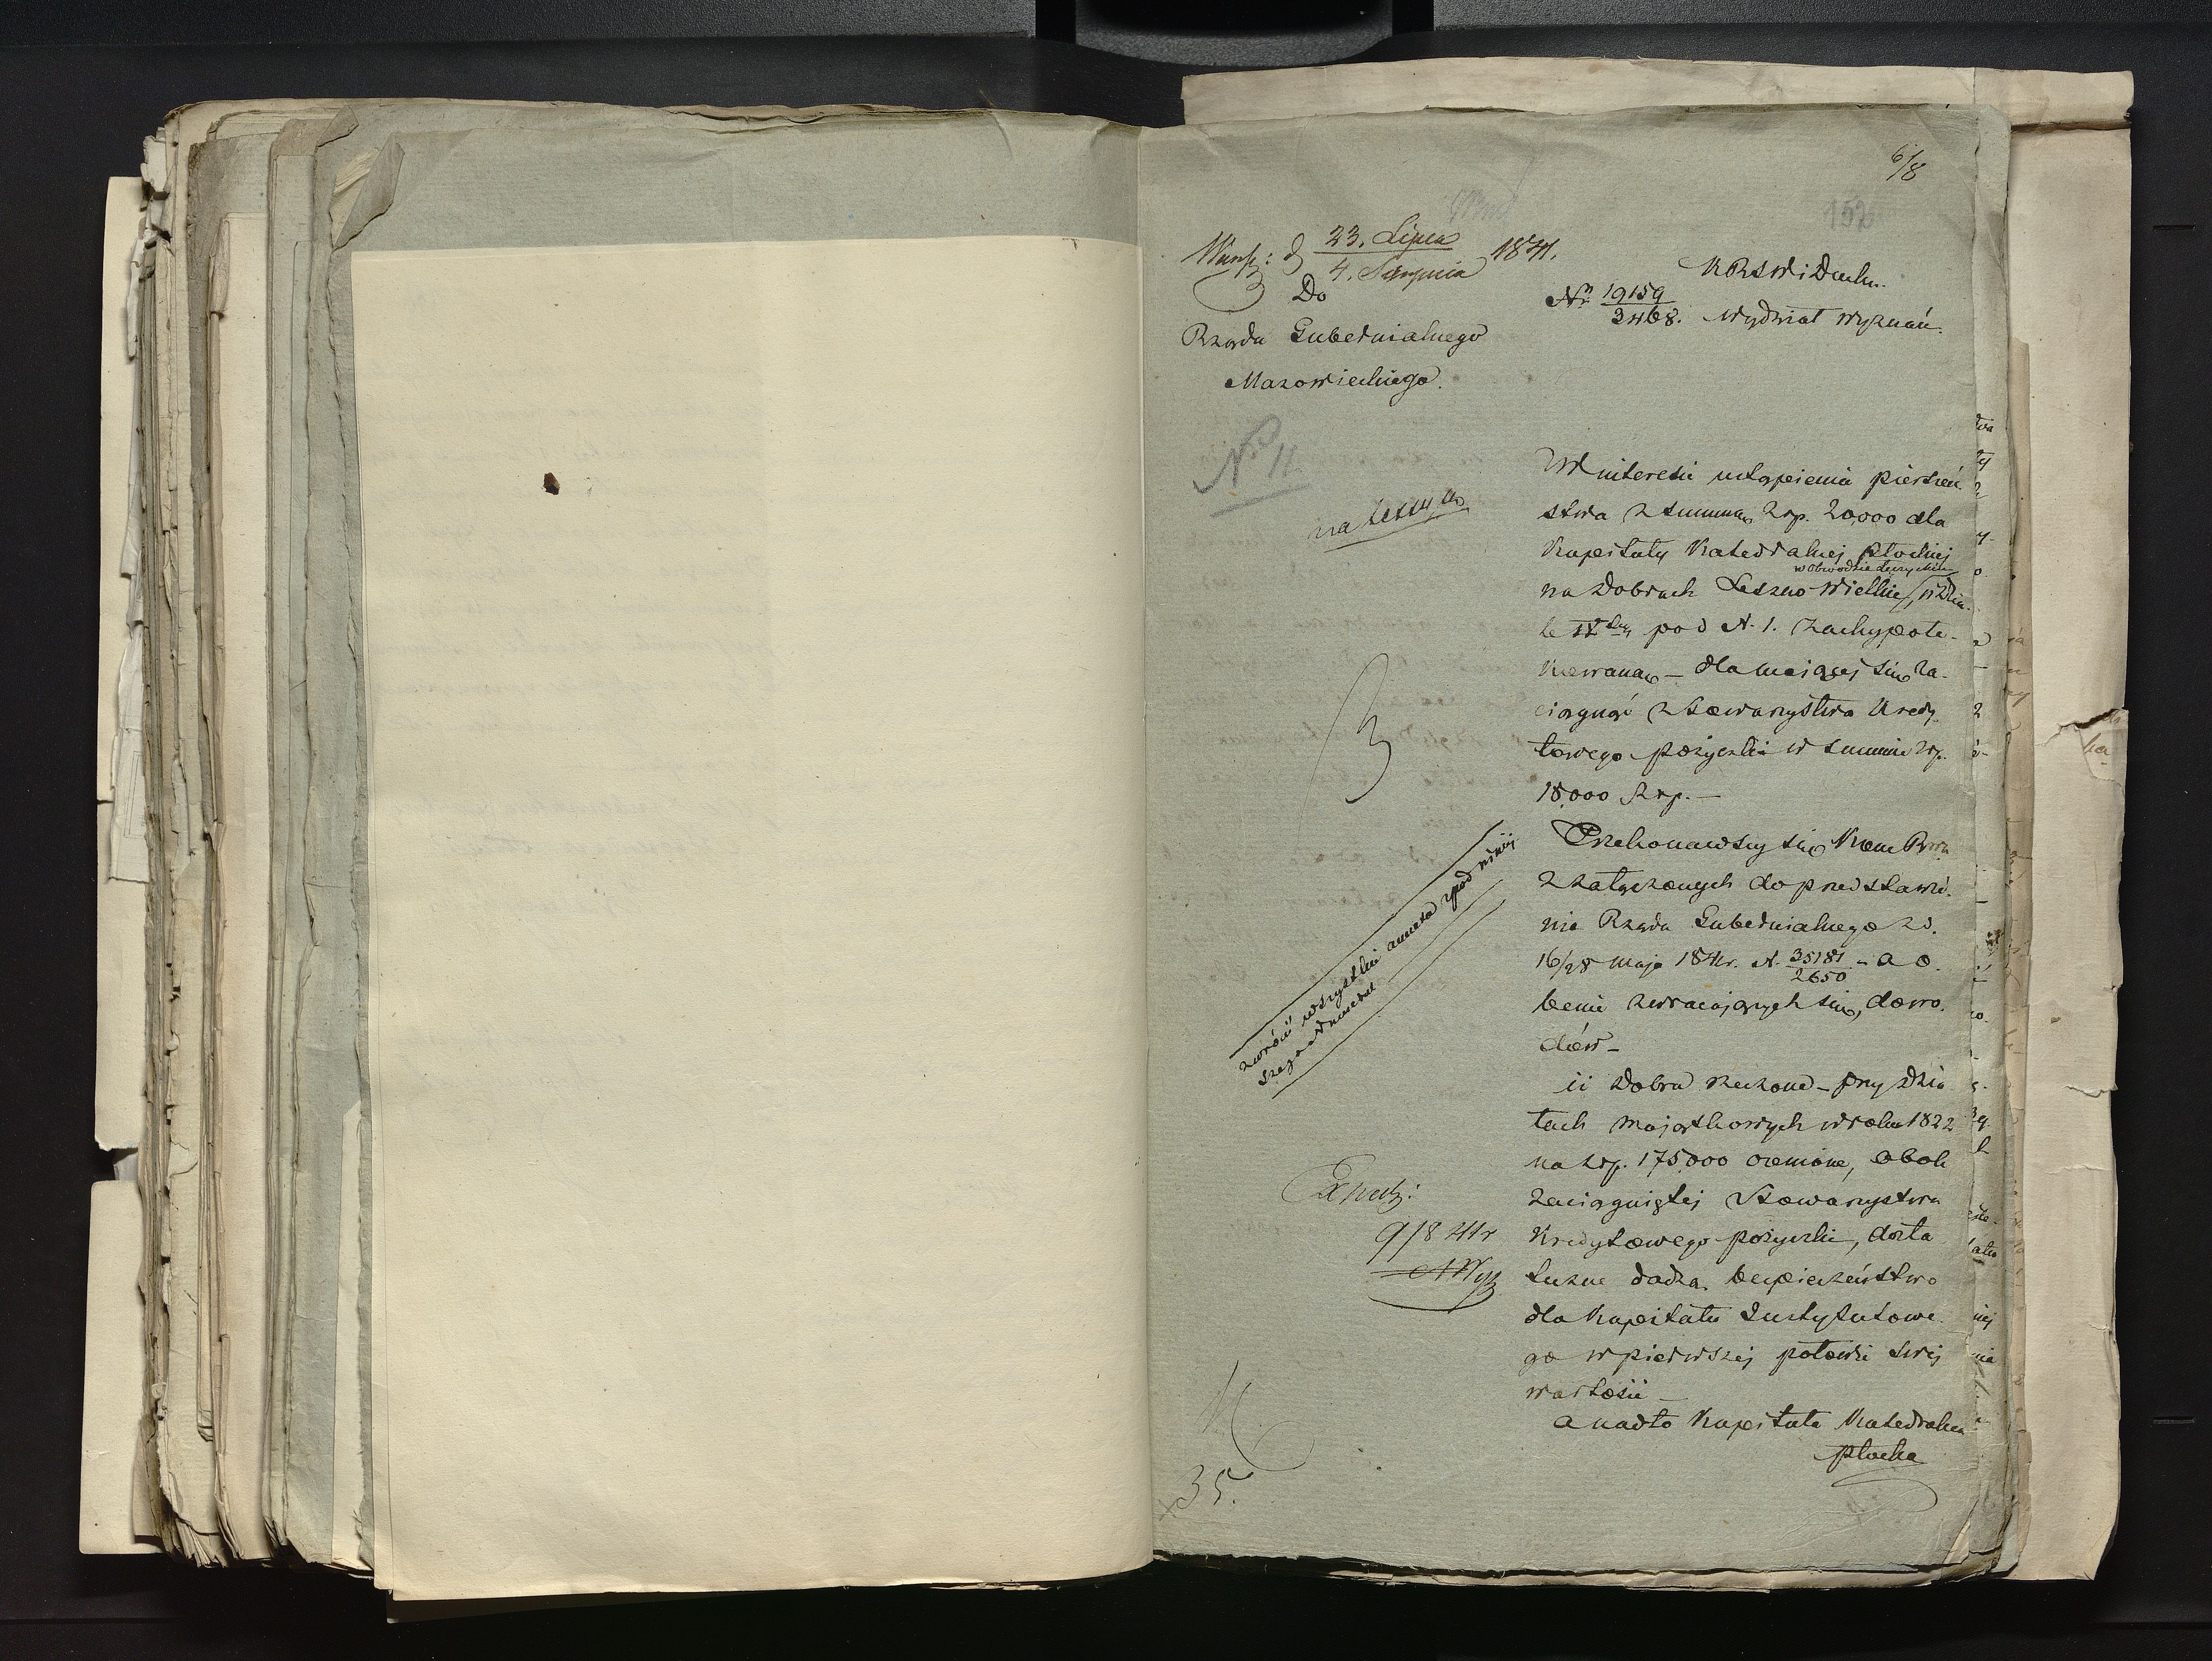 6/8
152
Warsz: d 23. Lipca / 4. Sierpnia 1841.
Do
Rządu Gubernialnego
Mazowieckiego.
K R S W i Duch.
Nr 19159 / 3468. Wydział Wyznań.
No 11
na
W interesie ustąpienia pierszeń
stwa z summą złp. 20,000 dla
Kapituły Katedralnej Płockiej
w Obwodzie Łęczyckim
na Dobrach Leszno Wielkie, w Dzia
le IV pod N. 1. zahypote-
kowaną – dla mającej się za-
ciągnąć z Towarzystwa Kredy
towego pożyczki w summie złp.
18,000 złp. –
Przekonawszy się Kom Rząd
z załączonych do przedstawie
nia Rządu Gubernialnego z d.
16/28 Maja 1841 r. N. 35181 / 2650 – a o
becnie zwracających się, dowo
dów –
iż Dobra rzeczone – przy dzia
łach majątkowych w roku 1822
na złp. 175,000 ocenione, obok
zaciągniętej z Towarzystwa
Kredytowego pożyczki, dosta
teczne dadzą bezpieczeństwo
dla Kapitału Instytutowe
go w pierwszej połowie swej
wartości –
a nadto Kapituła Katedralna
Płocka
zwrócić wszystkie annexa pod niniej
szego
Exped:
9/8 41 r
35.